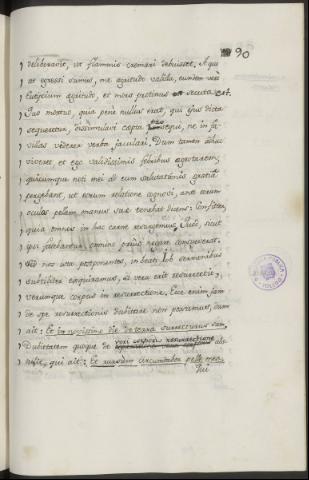 90
deliberavit, ut flammis cremari debuisset. A quo
at egressi sumus, me aegritudo valida, eumdem vero
Eutychium aegritudo, et mors protinus est secuta est.
Quo mortuo, quia pene nullus erat, qui ejus dicta
sequeretur, dissimulavi coepta prosequi, ne in fa-
villas viderer verba jaculari. Dum tamen adhuc
viveret et ego validissimis febribus aegrotarem,
quicumque noti me ad eum salutationis gratiâ
pergebant, ut eorum relatione cognovi, ante eorum
oculos pellem manus suae tenebat dicens: Confiteor,
quia omnes in hac carne resurgemus. Quod, sicut
ipsi fatebantur, omnino prius negare consueverat.
Sed nos ista postponentes, in beati Job sermonibus
subtiliter exquiramus, si vera erit resurrectio,
verumque corpus in resurrectione. Ecce enim jam
de spe resurrectionis dubitare non possumus, dum
ait: Et in novissimo die de terra surrecturus sum.
Dubitatem quoque de veri corporis resurrectione abs-
tulit, qui ait: Et rursum circumdabor pelle mea.
Qui